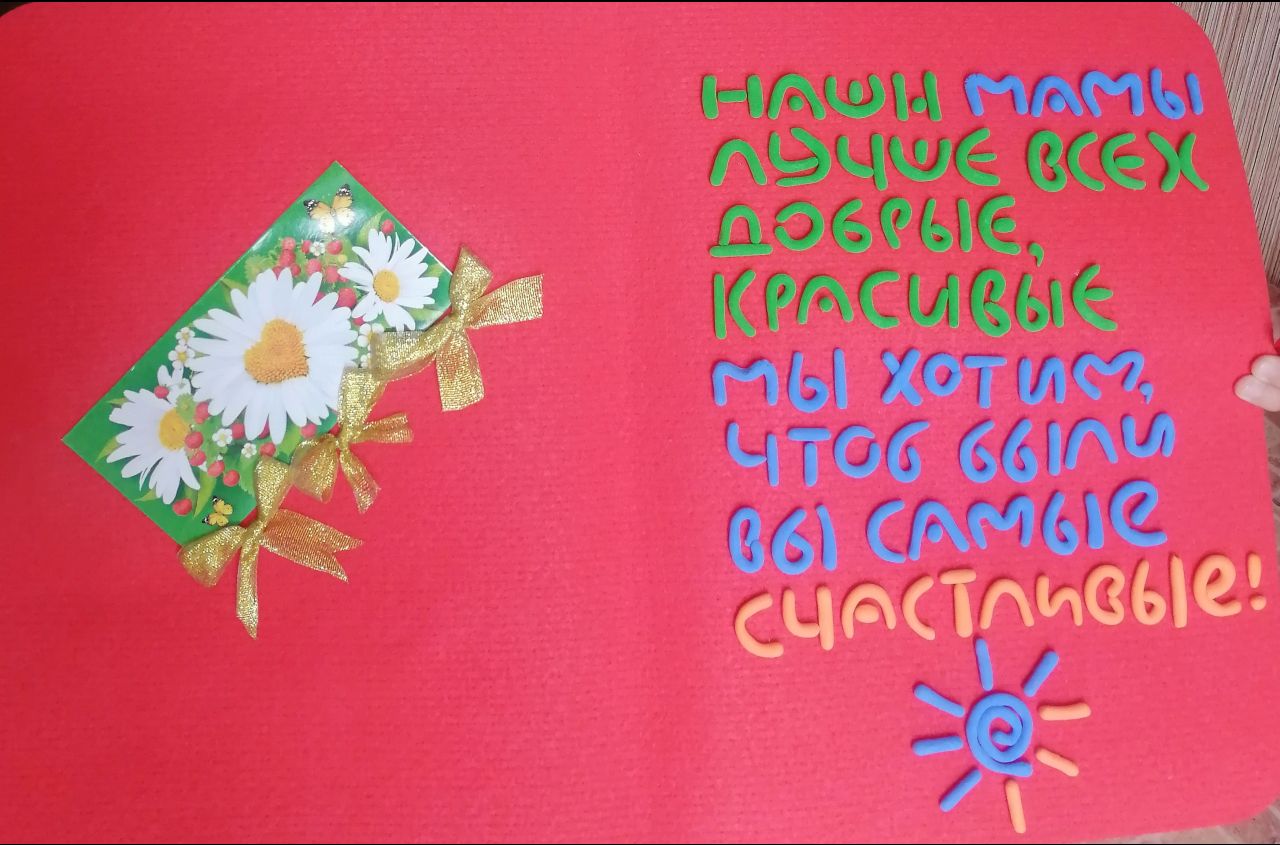 НАШИ МАМЫ
ЛУЧШЕ ВСЕХ
ДОБРЫЕ,
КРАСИВЫЕ
МЫ ХОТИМ,
ЧТОБ БЫЛИ
ВЫ САМЫЕ
СЧАСТЛИВЫЕ!